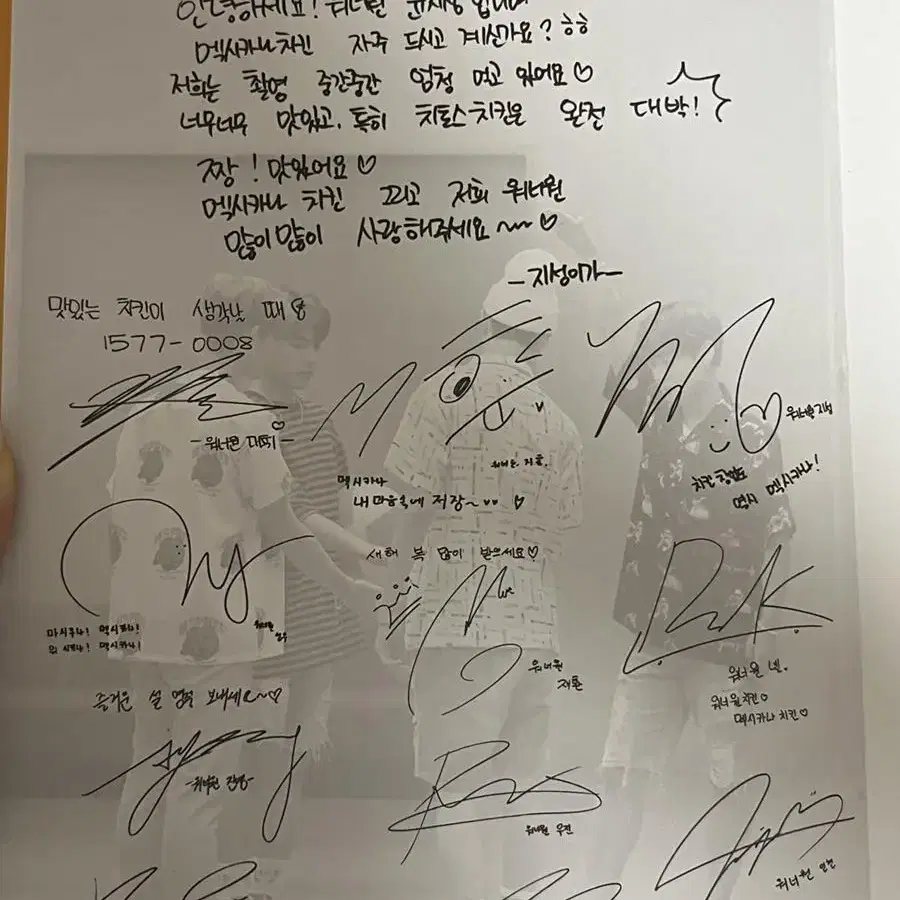 안녕하세요! 워너원 윤지성입니다
멕시카나치킨 자주 드시고 계신가요? ㅎㅎ
저희는 촬영 중간중간 엄청 먹고 있어요♡
너무너무 맛있고, 특히 치토스치킨은 완전 대박!
짱! 맛있어요♡
멕시카나 치킨 그리고 저희 워너원
많이많이 사랑해주세요~~♡
-지성이가-
맛있는 치킨이 생각날 때
1577-0008
-워너원 대휘-
멕시카나
내 마음속에 저장~ ♡
워너원 지훈.
워너원 지성
치킨
역시 멕시카나!
새해 복 많이 받으세요♡
워너원
멕시카나!
멕시카나!
워너원 재환
워너원
워너원 치킨♡
멕시카나 치킨♡
즐거운 설 명절 보내세요~♡
-워너원
워너원 우진
워너원